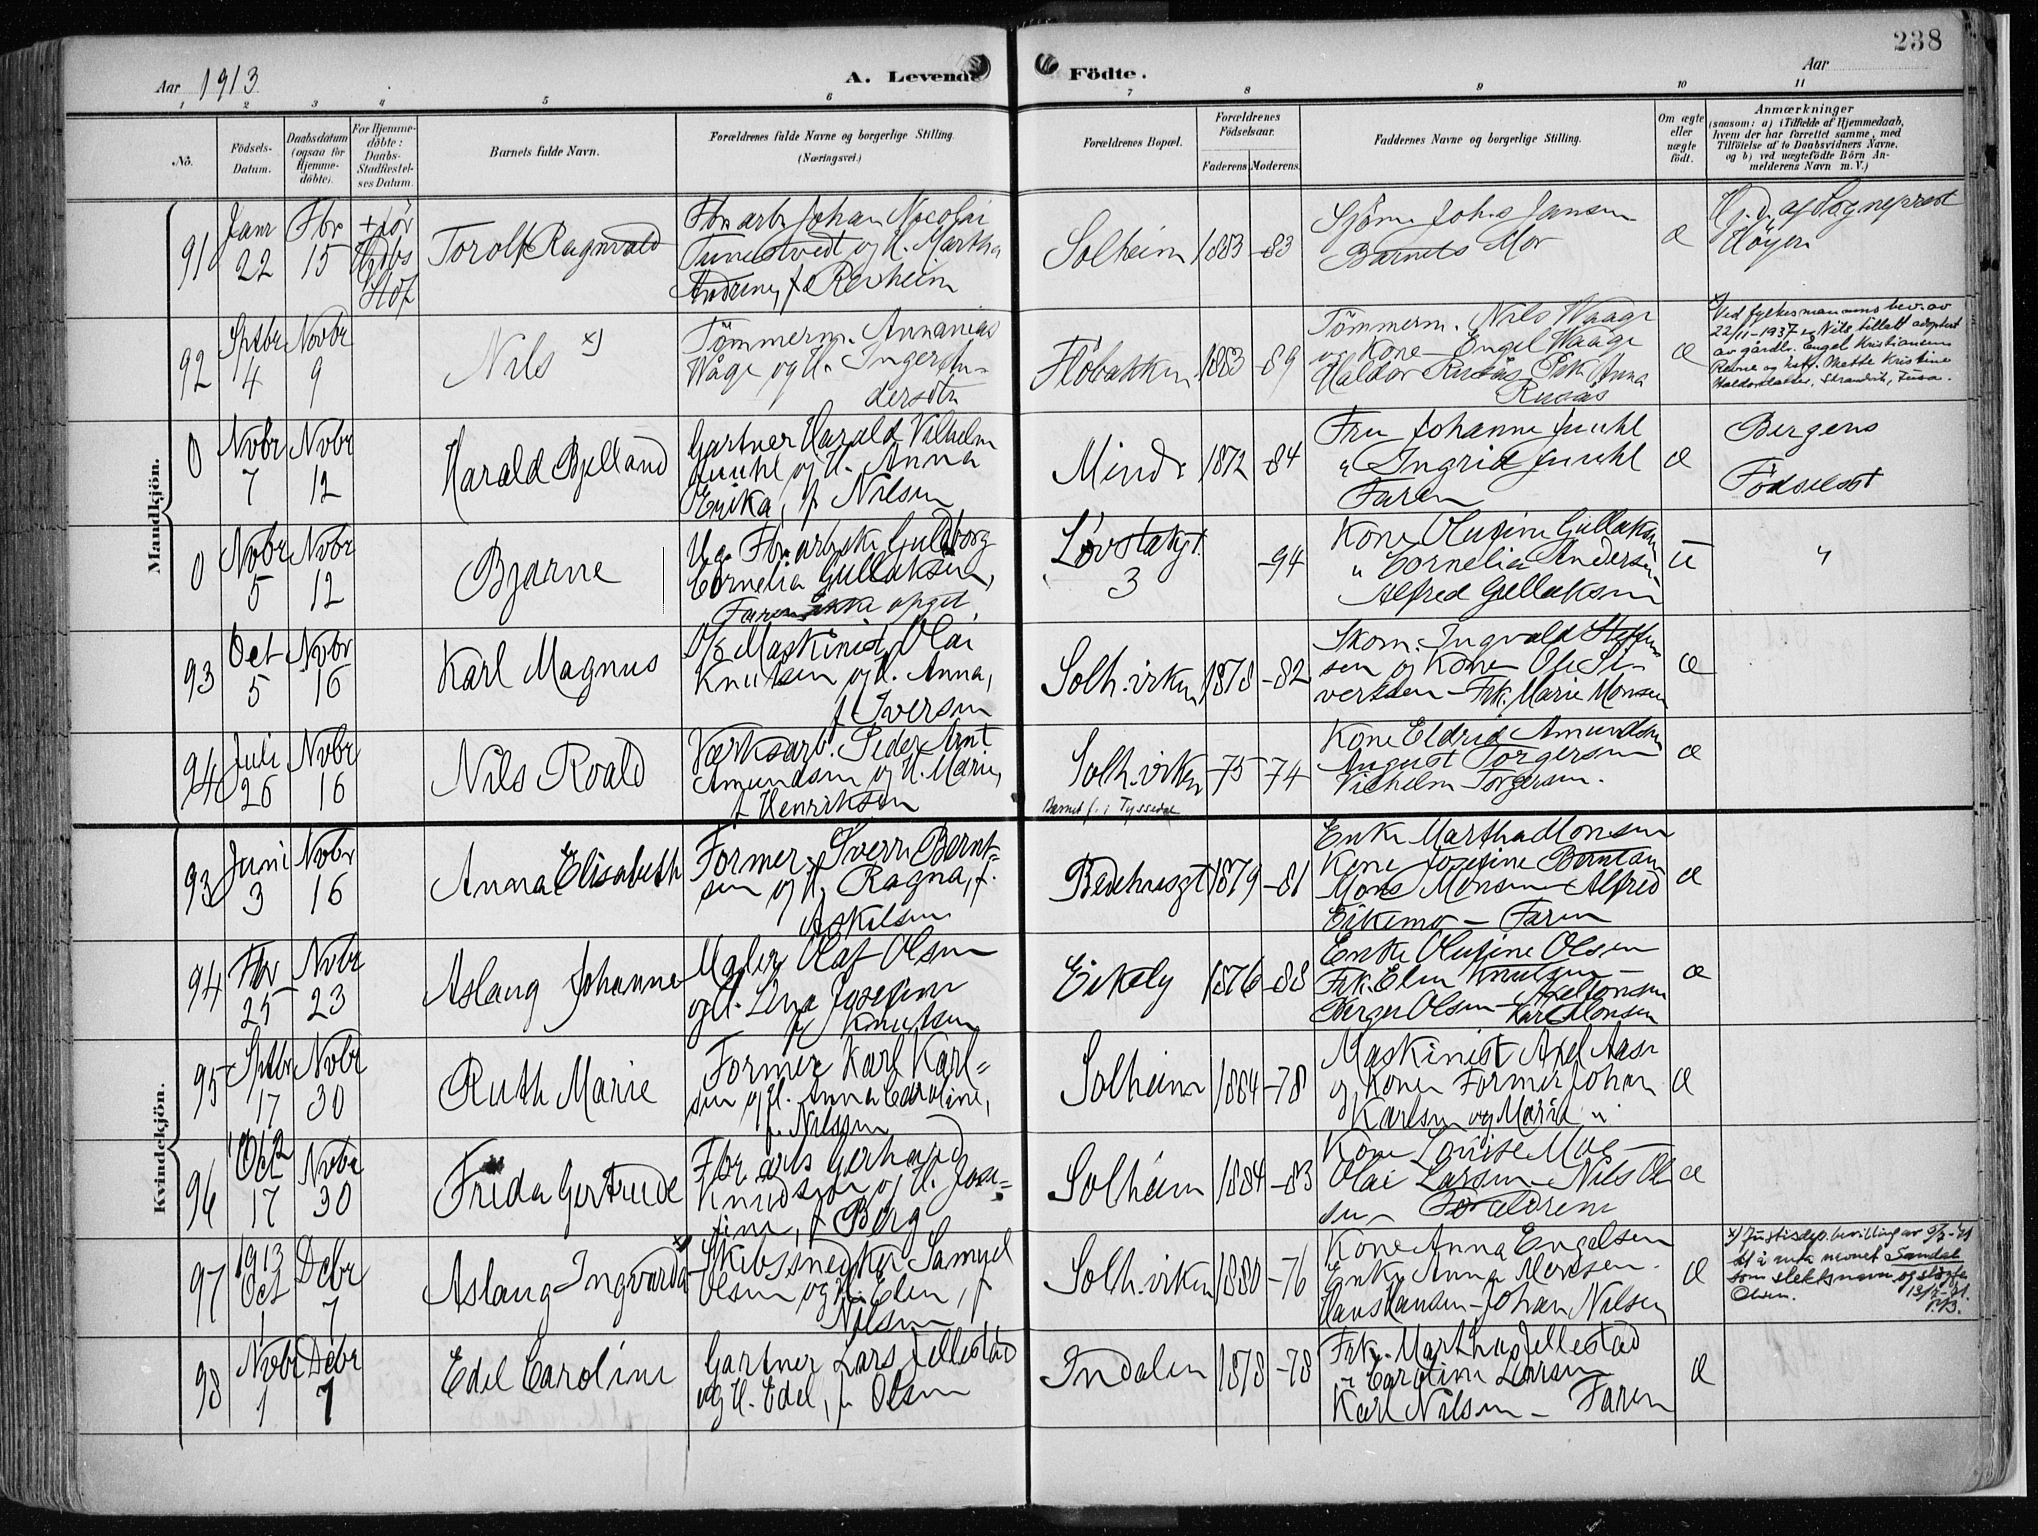 238
Aar 1913
A. Levende Födte.
Aar
1 2 3 4 5 6 7 8 9 10 11
Nô. Födsels-Datum. Daabsdatum (ogsaa for Hjemmedöbte). For Hjemmedöbte: Daabs-Stadfæstelses Datum. Barnets fulde Navn. Forældrenes fulde Navne og borgerlige Stilling. (Næringsvei.)
Forældrenes Bopæl. Forældrenes Födselsaar. Faderens. Moderens. Faddernes Navne og borgerlige Stilling. Om ægte eller uægte födt. Anmærkninger
(saasom: a) i Tilfælde af Hjemmedaab, hvem der har forrettet samme, med Tilföielse af to Daabsvidners Navne, og b) ved uægtefödte Börn Anmelderens Navn m. V.)
Mandkjön.
91 Janr 22 Fbr 15 + för Torolf Ragnvald
Fbr.arb. Johan Nicolai
Tunestvedt og H. Martha
Andrene, f. Revheim
Solheim 1883 -83
Sjöm. Johs Jansen
Barnets Mor
æ
Hj.d. af Sogneprest
Höyer
92 Sptbr 4 Novbr 9 Nils x)
Tömmerm. Annanias
Wåge og H. Inger
dersdtr
Flöbakken 1883 -89
Tömmerm. Nils Waage
og Kone Engel Waage
Haldor Rusås Frk. Anna
Rusås
æ
Ved fylkesmannens bev. av
22/11-1937 er Nils tillatt adoptert
av gårdbr. Engel Kristiansen
Revne og hst. Mette Kristine
Haldorsdatter, Strandvik, Fusa.
0 Novbr 7 Novbr 12 Harald Bjelland
Gartner Harald Vilhelm
Juuhl og H. Anna
Erika, f. Nilsen
Minde 1872 -84
Fru Johanne Juuhl
" Ingrid Juuhl
Faren
æ
Bergens
Födselsst
0 Novbr 5 Novbr 12 Bjarne
Ug. Fbr.arbske Guldborg
Cornelia Gullaksen,
Faren ikke opget
Lövstakgt. 3 -94
Kone Olufine Gullaksen
" Cornelia Andersen
Alfred Gullaksen
u
"
93 Oct 5 Novbr 16 Karl Magnus
Maskinist Olai
Knutsen og H. Anna,
f. Iversen
Solh.viken 1878 -82
Skom. Ingvald Steffensen
og Kone Ole Sivertsen
Frk. Marie Monsen
æ
94 Juli 26 Novbr 16 Nils Roald
Værksarb. Peder Arnt
Amundsen og H. Marie,
f. Henriksen
Solh.viken -75 -74
Barnet f. i Tyssedal
Kone Eldrid Amundsen
August Torgersen
Vilhelm Torgersen.
æ
Kvindekjön.
93 Juni 3 Novbr 16 Anna Elisabeth
Former Sverre Berntsen
og H. Ragna, f.
Askilsen
Bedehusgt 1879 -81
Enke Martha Monsen
Kone Josefine Berntsen
Mons Monsen Alfred
Eikemo - Faren
æ
94 Fbr 25 Novbr 23 Aslaug Johanne
Maler Olaf Olsen
og H. Lina Josefine
f. Knutsen
Eikely 1876 -88
Enke Olufine Olsen
Frk. Elen Knutsen -
Birger Olsen - Karl Monsen
æ
95 Sptbr 17 Novbr 30 Ruth Marie
Former Karl Karlsen
og H. Anna Caroline,
f. Nilssen
Solheim 1884 -78
Maskinist Axel Aase
og Kone Former Johan
Karlsen og Maria "
æ
96 Oct 17 Novbr 30 Frida Gertrude
Fbr.arb Gerhard
Knudsen og H. Josefine,
f. Berg
Solheim 1884 -83
Kone Lovise Moe -
Olai Larsen - Nils Olsen
- Forældrene
æ
97 1913 Oct 1 Dcbr 7 Aslaug Ingvarda x)
Skibssnedker Samuel
Olsen og H. Elen, f.
Nilsen
Solh.viken 1880 -76
Kone Anna Engelsen
Enke Anna Monsen.
Hans Hansen - Johan Nilsen
æ
x) Justisdep. bevilling av
til å anta navnet Sandal
som slektsnavn og slöyfe
Olsen.
98 Novbr 1 Dcbr 7 Edel Caroline
Gartner Lars Jellestad
og H. Edel, f. Olsen
Indalen 1878 -78
Frk. Martha Jellestad
" Caroline Larsen
Karl Nilsen - Faren
æ